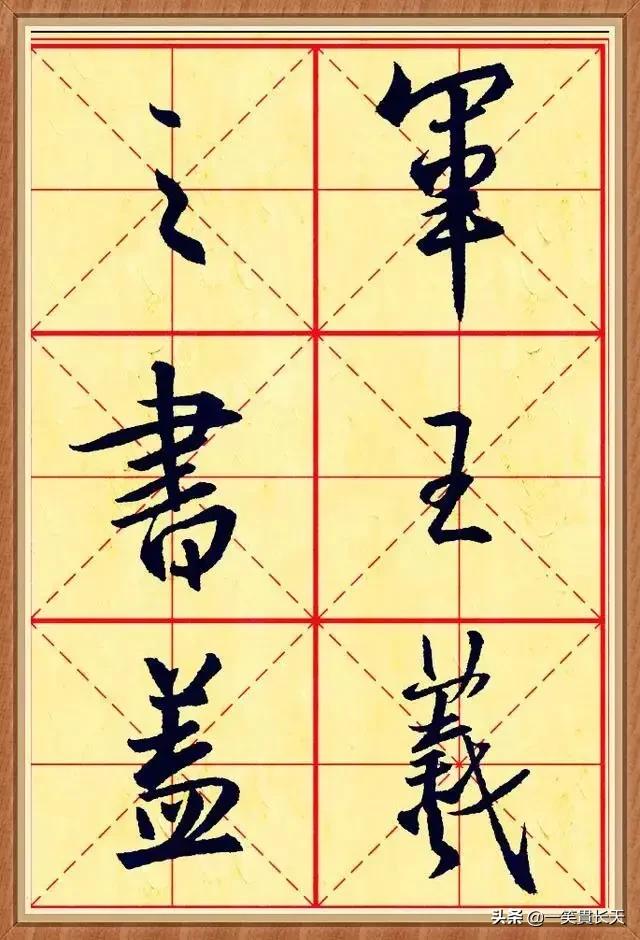 軍王羲
之書盖
头条 @一笑貫长天